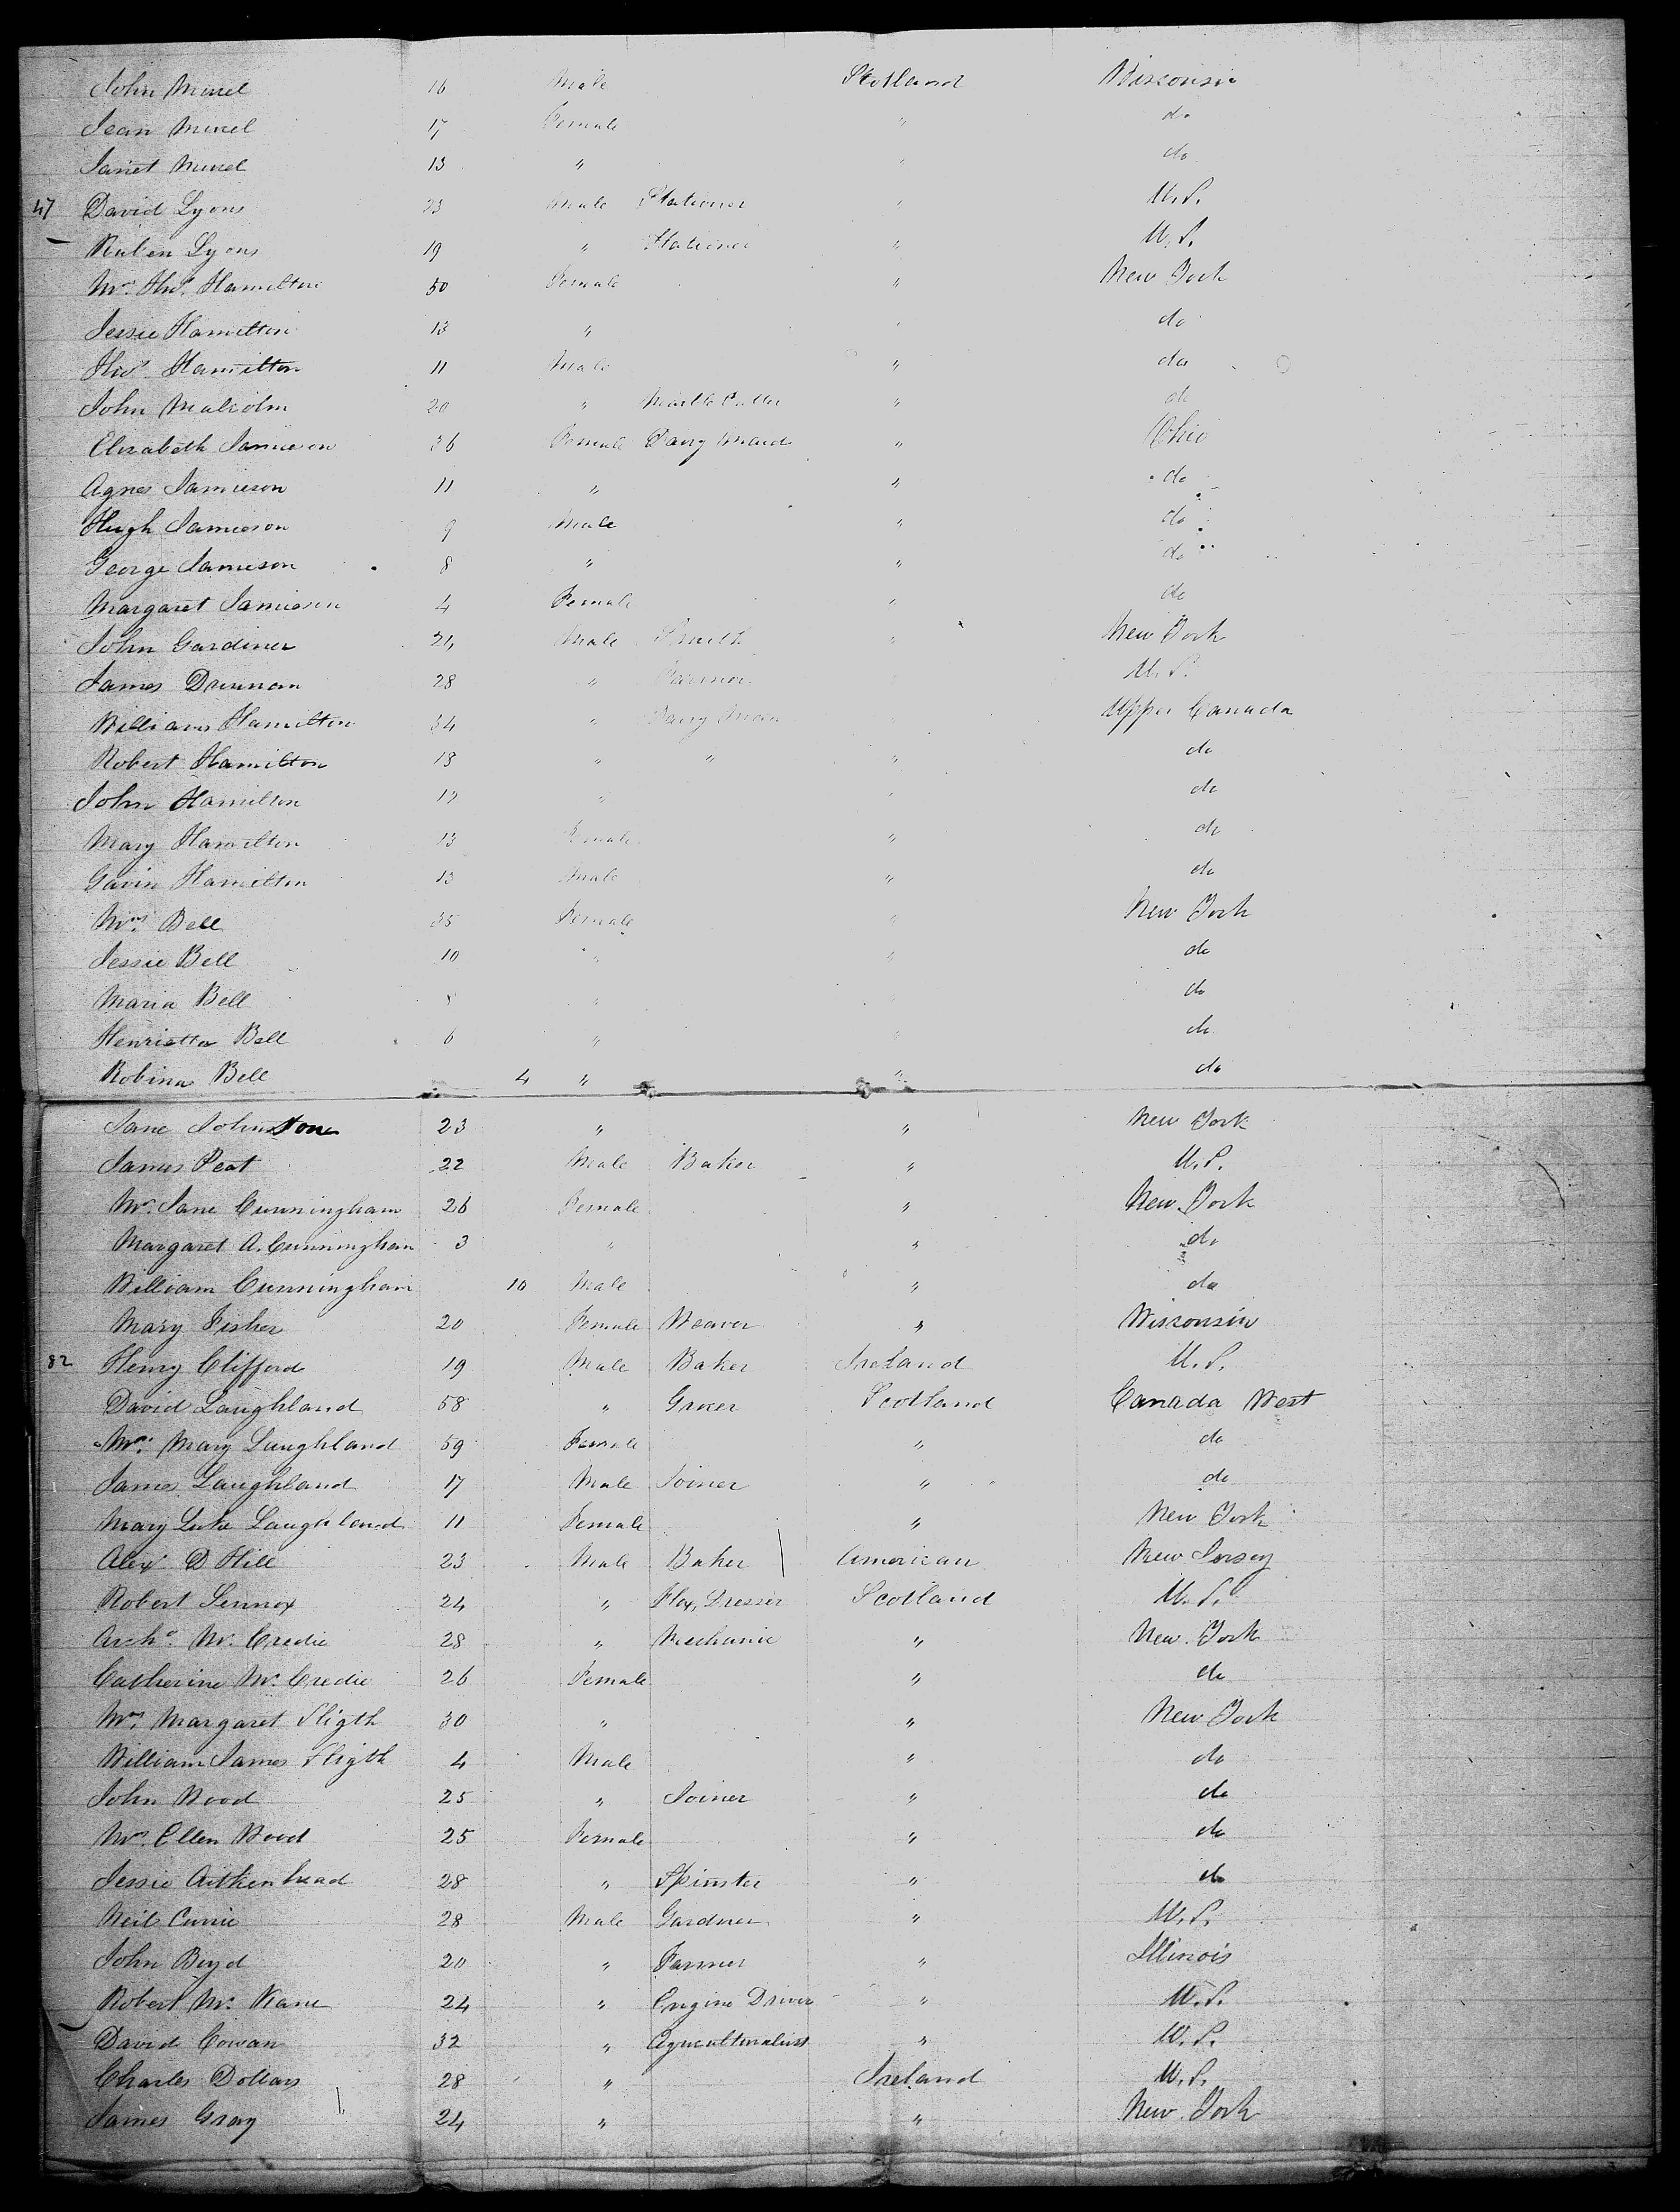 John 16 Male Scotland Wisconsin
Jean 17 Female " do
Janet 13 " " do
47 David Lyons 23 Male Stationer " U.S.
Lyons 19 " Stationer " U.S.
Mrs. Thos. Hamilton 50 Female " New York
Jessie Hamilton 13 " " do
Thos. Hamilton 11 Male " do
John Malcolm 20 " Marble Cutter " do
Elizabeth Jamieson 36 Female Dairy Maid " Ohio
Agnes Jamieson 11 " " do
Hugh Jamieson 9 Male " do
George Jamieson 8 " " do
Margaret Jamieson 4 Female " do
John Gardiner Male Smith " New York
James Drennan 28 " Farmer U.S.
William Hamilton 34 " Dairy Man Upper Canada
Robert Hamilton 18 " " " do
John Hamilton " " do
Mary Hamilton 13 Female " do
Gavin Hamilton 13 Male " do
Mrs. Bell 35 Female " New York
Jessie Bell 10 " " do
Maria Bell 8 " do
Henrietta Bell 6 " " do
Robina Bell 4 " " do
Jane Johnstone 23 " " New York
James Peat 22 Male Baker " U.S.
Mrs. Jane Cunningham 26 Female " New York
Margaret A. Cunningham 3 " " do
William Cunningham 10 Male " do
Mary Fisher 20 Female Weaver " Wisconsin
82 Henry Clifford 19 Male Baker Ireland U.S.
David Laughland 58 " Grocer Scotland Canada West
Mrs. Mary Laughland 59 Female " do
James Laughland 17 Male Joiner " do
Mary Luke Laughland 11 Female " New York
Alexr. D Hill 23 Male Baker American New Jersey
Robert Lennox 24 " Flax Dresser Scotland U.S.
Archd. Mc. Credie 28 " Mechanic " New York
Catherine Mc. Credie 26 Female " do
Mrs. Margaret Sligth 30 " " New York
William James Sligth 4 Male " do
John Wood 25 " Joiner " do
Mrs. Ellen Wood 25 Female " do
Jessie Aitkenhead 28 " Spinster " do
Neil Currie 28 Male Gardner " U.S.
John Boyd 20 " Farmer " Illinois
Robert Mc. Kane 24 " Engine Driver " U.S.
David Cowan 32 " Agriculturalist " U.S.
Charles Dollars 28 " Ireland U.S.
James Gray 24 " " New York